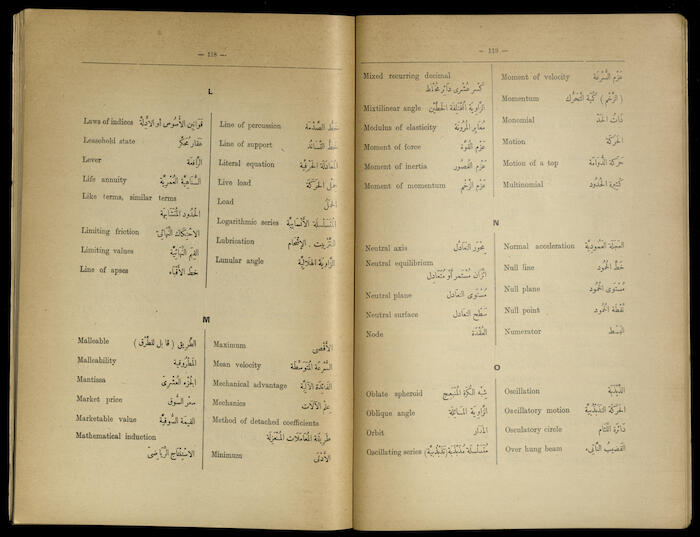 — 118 —
L
Laws of indices قوانين الأسوس أو الأدلة
Leasehold state عقار محكر
Lever الرافعة
Life annuity السناهية العمرية
Like terms, similar terms
الحدود المتشابهة
Limiting friction الاحتكاك النهائي
Limiting values القيم النهائية
Line of apses خط الأقباء
Line of percussion خط الصدمة
Line of support خط التساند
Literal equation المعادلة الحرفية
Live load حمل الحركة
Load الحمل
Logarithmic series المتسلسلة الأنسابية
Lubrication التزييت . الإشحام
Lunular angle الزاوية الهلالية
M
Malleable الطريق ( قابل للطرق )
Malleability المطروقية
Mantissa الجزء العشري
Market price سعر السوق
Marketable value القيمة السوقية
Mathematical induction
الاستنتاج الرياضي
Maximum الأقصى
Mean velocity السرعة المتوسطة
Mechanical advantage الفائدة الآلية
Mechanics علم الآلات
Method of detached coefficients
طريقة المعاملات المنعزلة
Minimum الأدنى
— 119 —
Mixed recurring decimal
كسر عشري دائر مخلاط
Mixtilinear angle الزاوية المختلفة الخطين
Modulus of elasticity معاير المرونة
Moment of force عزم القوة
Moment of inertia عزم القصور
Moment of momentum عزم الزخم
Moment of velocity عزم السرعة
Momentum ( الزخم ) كمية التحرك
Monomial ذات الحد
Motion الحركة
Motion of a top حركة الدوامة
Multinomial كثيرة الحدود
N
Neutral axis محور التعادل
Neutral equilibrium
اتزان مستمر أو متعادل
Neutral plane مستوى التعادل
Neutral surface سطح التعادل
Node العقدة
Normal acceleration العجلة العمودية
Null line خط الخمود
Null plane مستوى الخمود
Null point نقطة الخمود
Numerator البسط
O
Oblate spheroid شبه الكرة المنبعج
Oblique angle الزاوية المائلة
Orbit المدار
Oscillating series متسلسلة مذبذبة (تذبذبية)
Oscillation الذبذبة
Oscillatory motion الحركة التذبذبية
Osculatory circle دائرة اللثام
Over hung beam القضيب الناتئ